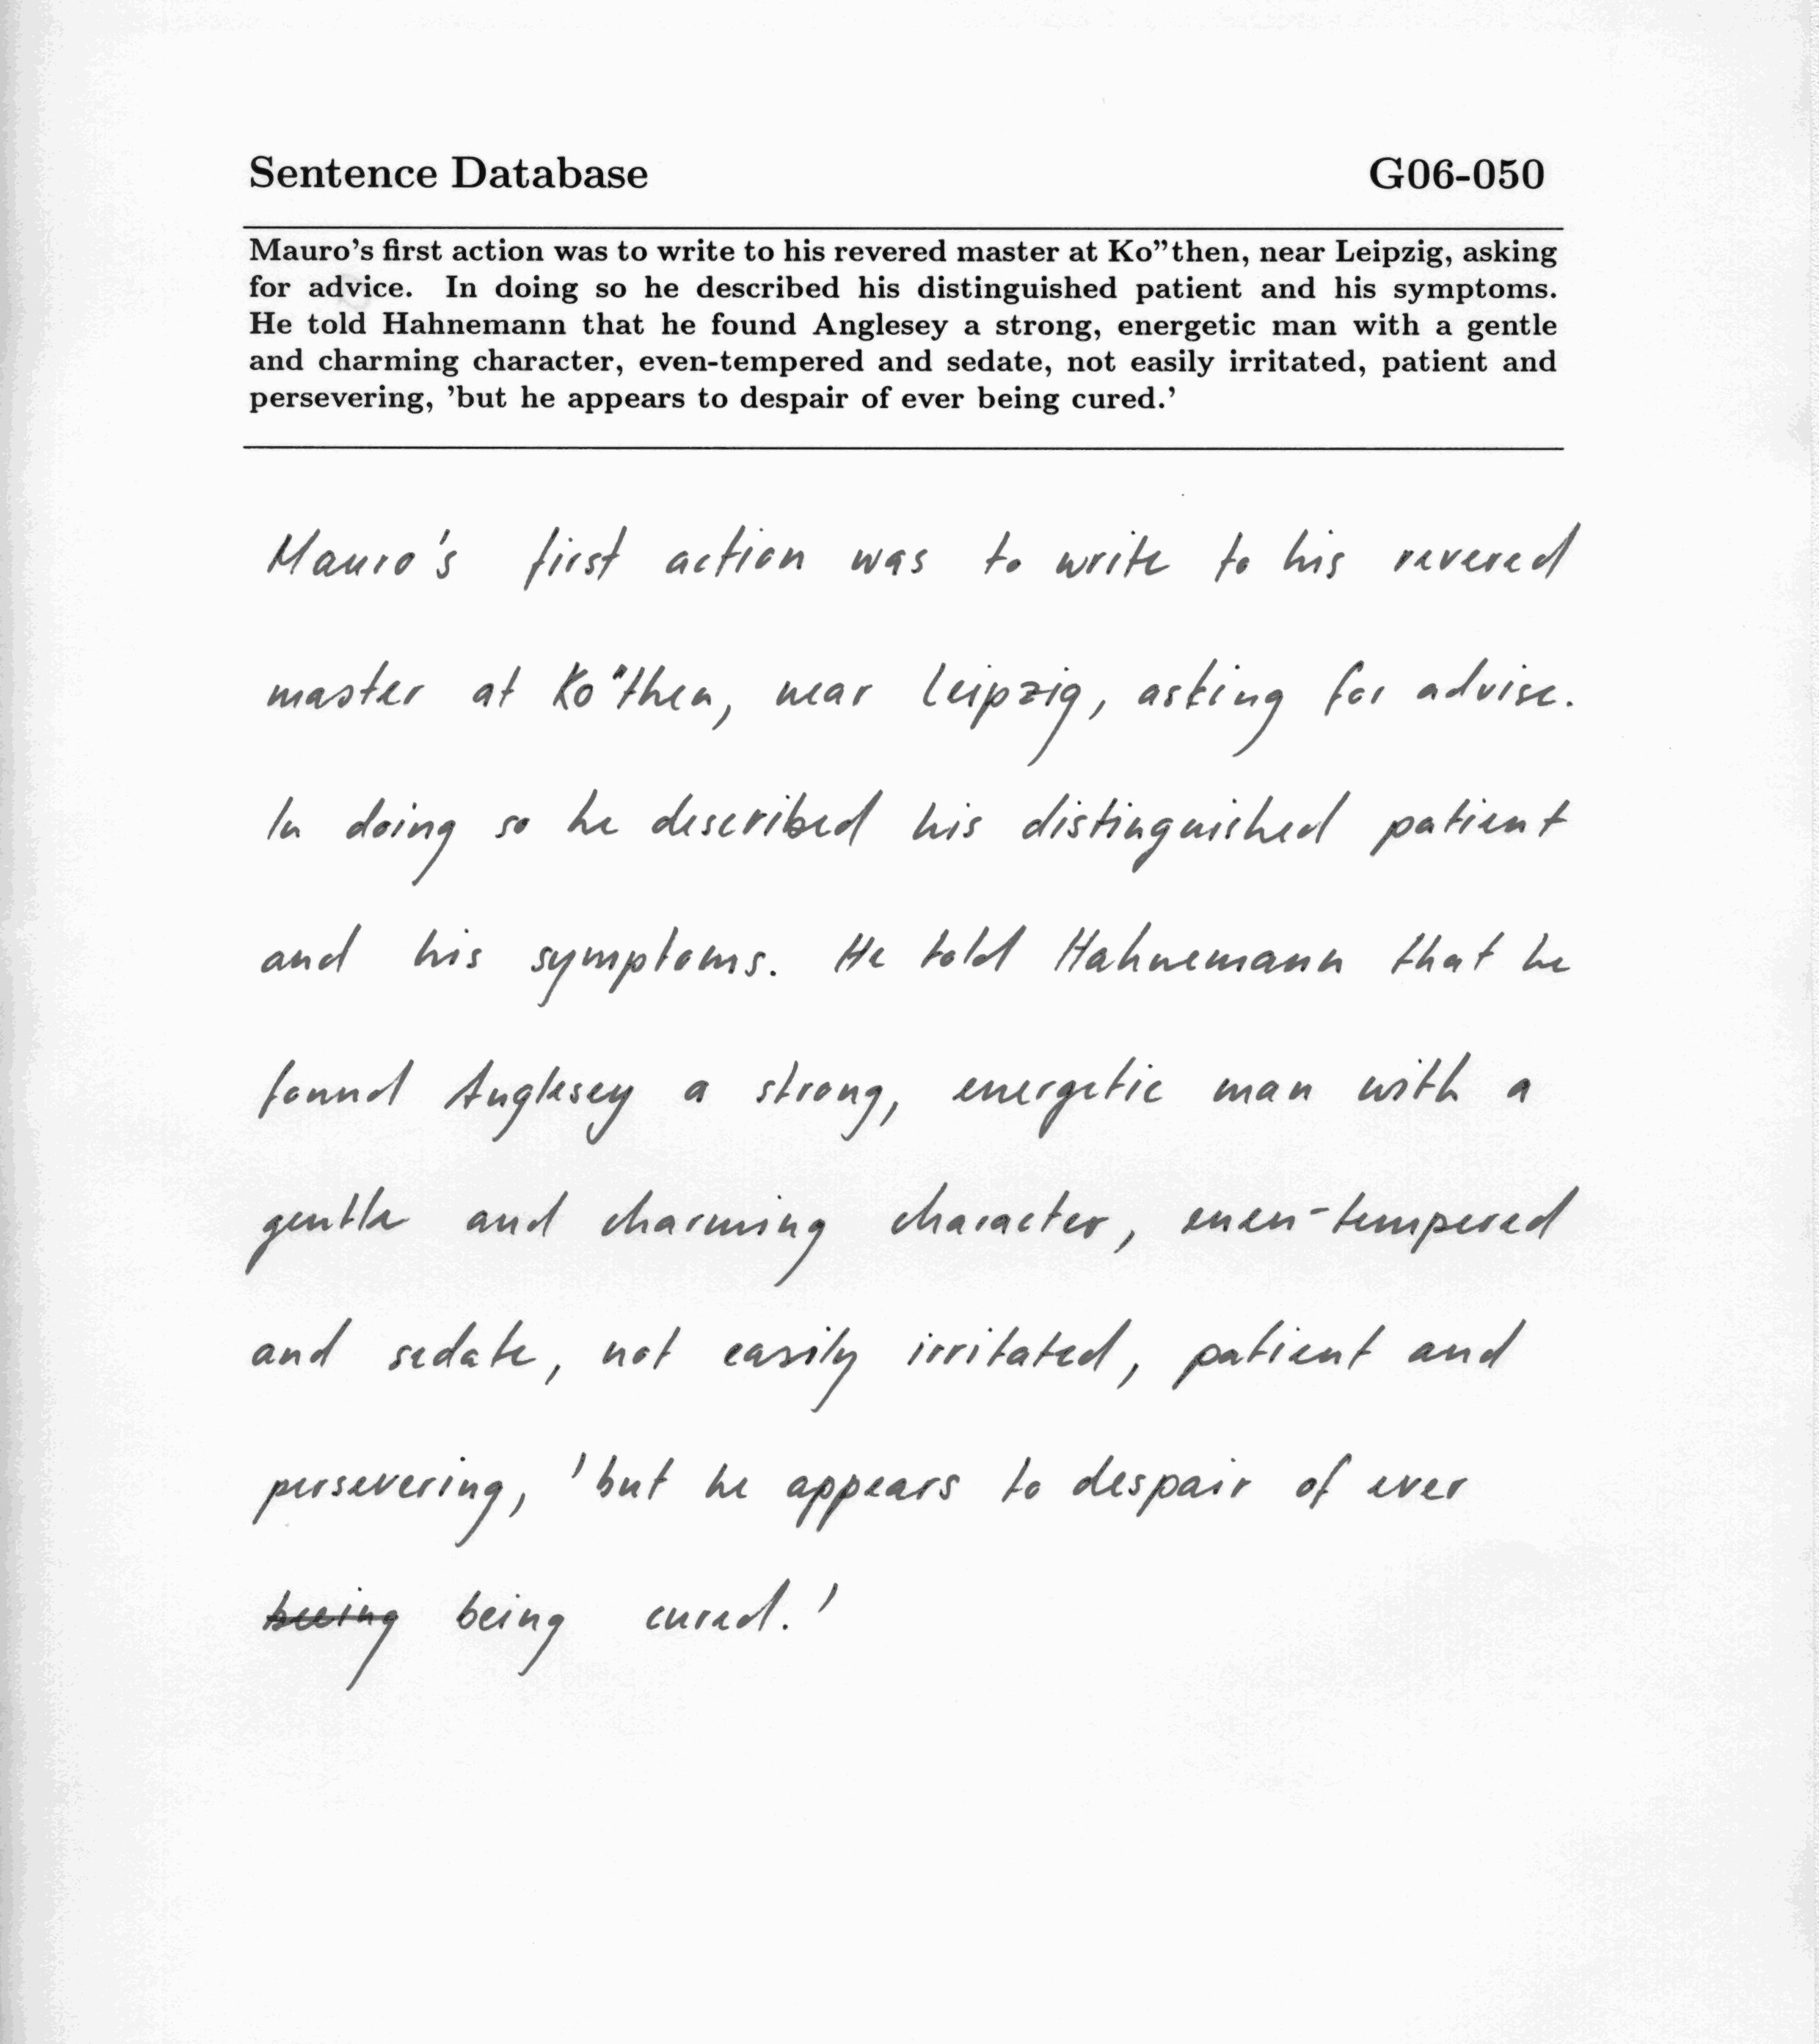 Sentence Database G06-050
Mauro's first action was to write to his revered master at Ko"then, near Leipzig, asking
for advice. In doing so he described his distinguished patient and his symptoms.
He told Hahnemann that he found Anglesey a strong, energetic man with a gentle
and charming character, even-tempered and sedate, not easily irritated, patient and
persevering, 'but he appears to despair of ever being cured.'
Mauro's first action was to write to his revered
master at Ko"then, near Leipzig, asking for advise.
In doing so he described his distinguished patient
and his symptoms. He told Hahnemann that he
found Anglesey a strong, energetic man with a
gentle and charming character, even-tempered
and sedate, not easily irritated, patient and
persevering, 'but he appears to despair of ever
beeing being cured.'